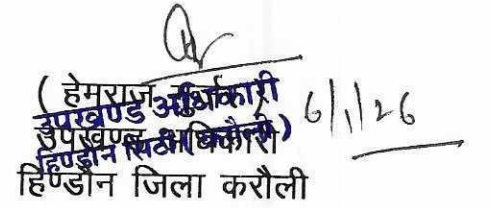 ( हेमराज गुर्जर )
उपखण्ड अधिकारी
हिण्डौन जिला करौली
उपखण्ड अधिकारी
हिण्डौन सिटी (करौली)
6/1/26